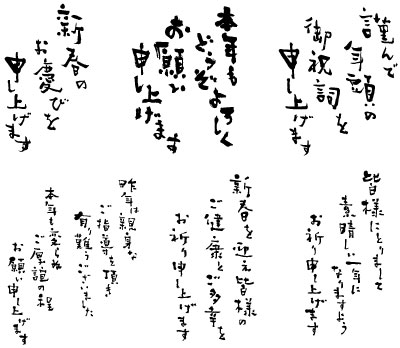 謹んで
年頭の
御祝詞を
申し上げます
本年も
どうぞよろしく
お願い
申し上げます
新春の
お慶びを
申し上げます
皆様にとりまして
素晴しい一年に
なりますよう
お祈り申し上げます
新春を迎え皆様の
ご健康とご多幸を
お祈り申し上げます
昨年は親身な
ご指導を頂き
有り難うございました
本年も変らぬ
ご厚誼の程
お願い申し上げます